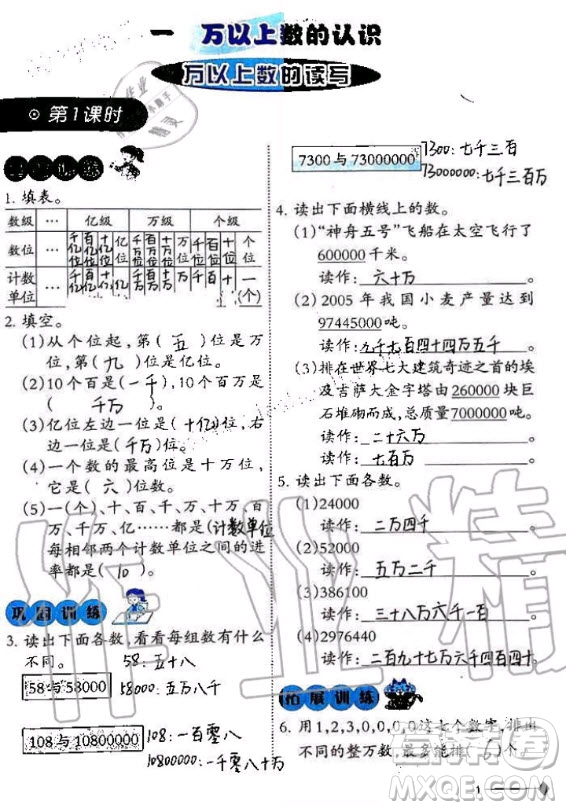 一 万以上数的认识
万以上数的读写
第1课时
1. 填表。
数级 … 亿级 万级 个级
数位 … 千亿位 百亿位 十亿位 亿位 千万位 百万位 十万位 万位 千位 百位 十位 个位
计数单位 … 千亿 百亿 十亿 亿 千万 百万 十万 万 千 百 十 一(个)
2. 填空。
(1)从个位起,第(五)位是万
位,第(九)位是亿位。
(2)10个百是(一千),10个百万是
(千万)。
(3)亿位左边一位是(十亿)位,右
边一位是(千万)位。
(4)一个数的最高位是十万位,
它是(六)位数。
(5)一(个)、十、百、千、万、十万、百
万、千万、亿……都是(计数单位)
每相邻两个计数单位之间的进
率都是(10)。
巩固训练
3. 读出下面各数,看看每组数有什么
不同。 58:五十八
58与58000 58000:五万八千
108与10800000 108:一百零八
10800000:一千零八十万
7300与73000000 7300:七千三百
73000000:七千三百万
4. 读出下面横线上的数。
(1)“神舟五号”飞船在太空飞行了
600000千米。
读作:六十万。
(2)2005年我国小麦产量达到
97445000吨。
读作:九千七百四十四万五千。
(3)排在世界七大建筑奇迹之首的埃
及吉萨大金字塔由260000块巨
石堆砌而成,总质量7000000吨。
读作:二十六万。
读作:七百万。
5. 读出下面各数。
(1)24000
读作:二万四千
(2)52000
读作:五万二千
(3)386100
读作:三十八万六千一百
(4)2976440
读作:二百九十七万六千四百四十
拓展训练
6. 用1,2,3,0,0,0,0这七个数字,排出
不同的整万数,最多能排(6)个。
1
作业精
答案圈
MXQE.COM